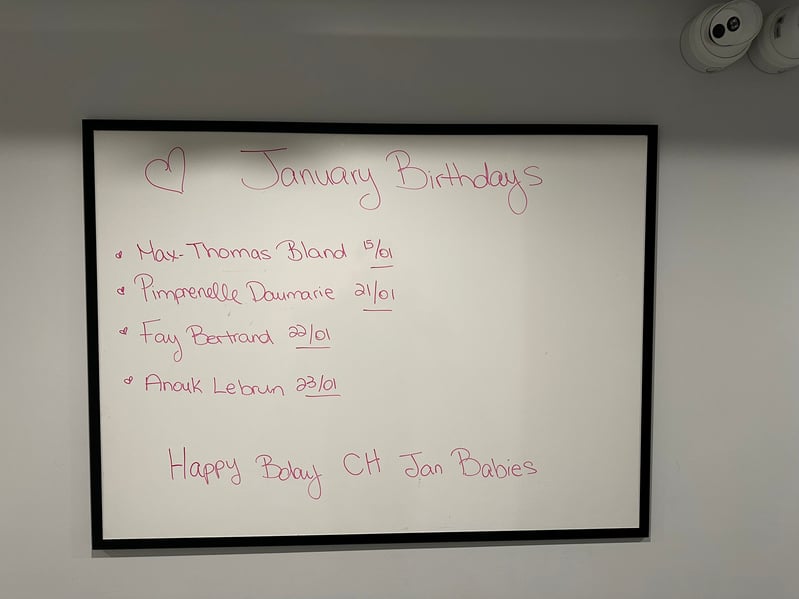 January Birthdays
Max-Thomas Bland 15/01
Pimprenelle Daumarie 21/01
Fay Bertrand 22/01
Anouk Lebrun 23/01
Happy Bday CH Jan Babies